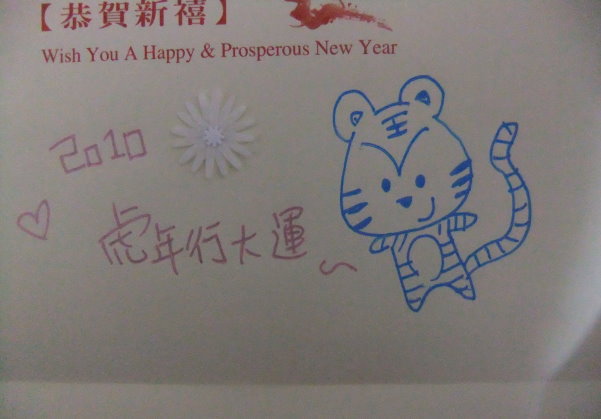 【恭賀新禧】
Wish You A Happy & Prosperous New Year
2010
虎年行大運~
王